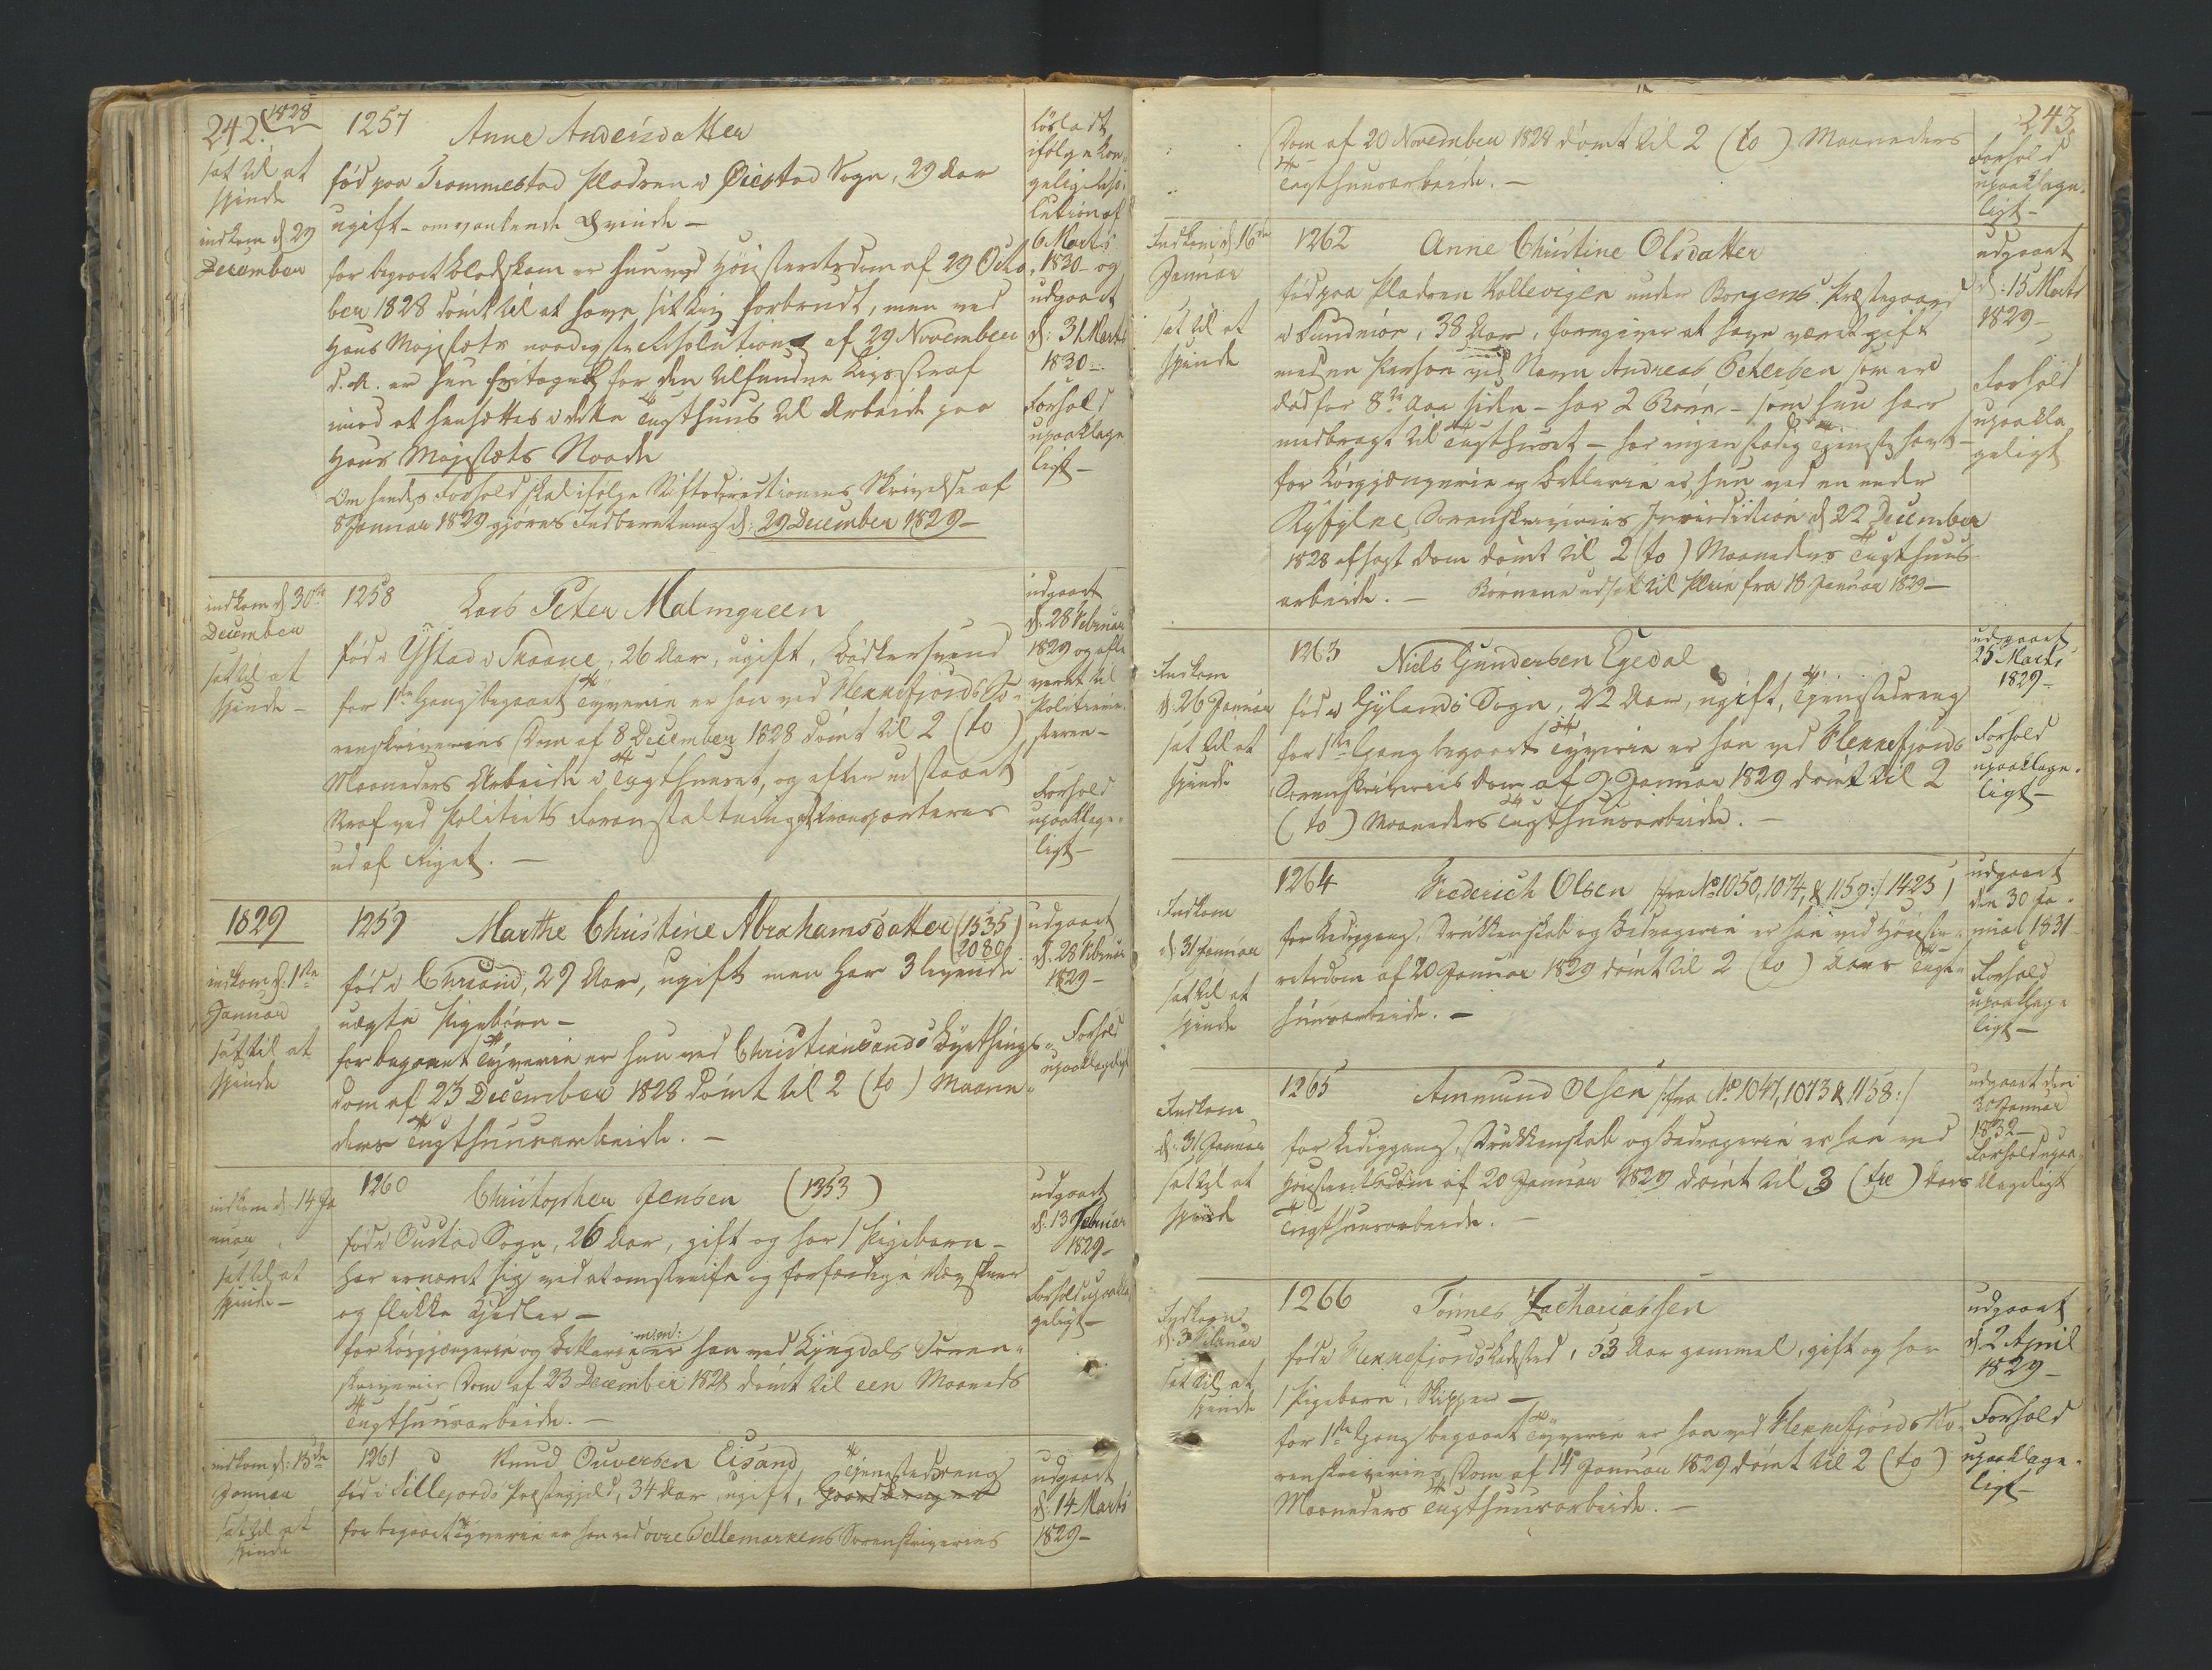 242. 1828
sat til at
spinde
indkom d: 29
December
1257 Anne Andersdatter
fød paa Trommestad Pladsen i Øiestad Sogn, 29 Aar
ugift - omvankende Qvinde -
for begaaet Blodskam er hun ved Høiesteretsdom af 29 Octo
ber 1828 dømt til at have sit Liv forbrudt, men ved
Hans Majestæts naadigste Resolution af 29 November
s. A. er hun fritaget for den tilfundne Livsstraf
imod at hensættes i dette Tugthuus til Arbeide paa
Hans Majestæts Naade
Om hendes Forhold skal ifølge Stiftsdirectionens Skrivelse af
8 Januar 1829 gjøres Indberetning d: 29 December 1829 -
løsladt
ifølge kon-
gelig Reso-
lution af
6 Marts
1830 - og
udgaaet
d: 31 Marts
1830 -
Forhold
upaaklage
ligt -
indkom d: 30te
December
sat til at
spinde -
1258 Lars Peter Malmgreen
fød i Ystad i Skaane, 26 Aar, ugift, Bødkersvend
for 1ste Gang begaaet Tyverie er han ved Flekkefjords So-
renskriveries Dom af 8 December 1828 dømt til 2 (to)
Maaneders Arbeide i Tugthuuset, og efter udstaaet
Straf ved Politiets Foranstaltning at transporteres
ud af Riget. -
udgaaet
d: 28 Februar
1829 og afle
veret til
Politieme-
steren -
Forhold
upaaklage-
ligt -
1829
indkom d: 1ste
Januar
sat til at
spinde
1259 Marthe Christine Abrahamsdatter (1535)
2080
fød i Chrsand, 29 Aar, ugift men har 3 levende
uægte Pigebørn -
for begaaet Tyverie er hun ved Christiansands Byethings
dom af 23 December 1828 dømt til 2 (to) Maane-
ders Tugthuusarbeide. -
udgaaet
d: 28 Februar
1829 -
Forhold
upaaklageligt
indkom d: 14 Ja
nuar
sat til at
spinde -
1260 Christopher Jensen (1353)
fød i Bustad Sogn, 26 Aar, gift og har 1 Pigebarn -
har ernæret sig ved at omstreife og forfærdige Vævskeer
og flikke Kjedler -
for Løsgjængerie og Betlerie er han ved Lyngdals Soren-
skriveries Dom af 23 December 1828 dømt til een Maaneds
Tugthuusarbeide. -
udgaaet
d: 13 Februar
1829 -
Forhold upaakla
geligt -
indkom d: 15de
Januar
sat til at
spinde
1261 Knud Ouversen Eisand
fød i Sillejords Præstegjeld, 34 Aar, ugift, Tjenestedreng
for begaaet Tyverie er han ved øvre Tellemarkens Sorenskriveries
udgaaet
d: 14 Marts
1829 -
243
Dom af 20 November 1828 dømt til 2 (to) Maaneders
Tugthuusarbeide. -
Forhold
upaaklage-
ligt -
Indkom d: 16de
Januar
sat til at
spinde
1262 Anne Christine Olsdatter
fød paa Pladsen Kollevigen under Borgens Præstegaard
i Sundmør, 38 Aar, foregiver at have været gift
med en Person ved Navn Andreas Petersen som er
død for 8te Aar siden - har 2 Børn - som hun har
medbragt til Tugthuset - har ingen stadig Tjeneste havt -
for Løsgjængerie og Betlerie er hun ved en under
Ryfylke Sorenskriveries Jurisdiction d: 22 December
1828 afsagt Dom dømt til 2 (to) Maaneders Tugthuus
arbeide. - Børnene udsat til Pleie fra 18 Januar 1829 -
udgaaet
d: 15 Marts
1829 -
Forhold
upaakla
geligt
Indkom
d: 26 Januar
sat til at
spinde
1263 Niels Gundersen Egedal
fød i Gylands Sogn, 22 Aar, ugift, Tjenestedreng
for 1ste Gang begaaet Tyverie er han ved Flekkefjords
Sorenskriveries Dom af 9 Januar 1829 dømt til 2
(to) Maaneders Tugthuusarbeide. -
udgaaet
25 Marts
1829 -
Forhold
upaaklage-
ligt -
Indkom
d: 31 Januar
sat til at
spinde
1264 Frederich Olsen /:fra No 1050, 1074, & 1159:/ 1423)
for Lediggang, Drukkenskab og Bedragerie er han ved Høieste-
retsdom af 20 Januar 1829 dømt til 2 (to) Aars Tugt-
huusarbeide. -
udgaaet
den 30 Ja-
nuar 1831
Forhold
upaaklage
ligt -
Indkom
d: 31 Januar
sat til at
spinde
1265 Ammund Olsen /:fra No 1047, 1073 & 1158:/
for Lediggang, Drukkenskab og Bedragerie er han ved
Høiesteretsdom af 20 Januar 1829 dømt til 3 (tre) Aars
Tugthuusarbeide. -
udgaaet den
30 Januar
1832 -
Forhold upaa
klageligt
Indkom
d: 3 Februar
sat til at
spinde
1266 Tønnes Zachariassen
fød i Flekkefjords Ladested, 53 Aar gammel, gift og har
1 Pigebarn, Skipper -
for 1ste Gang begaaet Tyverie er han ved Flekkefjords So-
renskriveries Dom af 14 Januar 1829 dømt til 2 (to)
Maaneders Tugthuusarbeide. -
udgaaet
d: 2 April
1829 -
Forhold
upaaklage-
ligt -